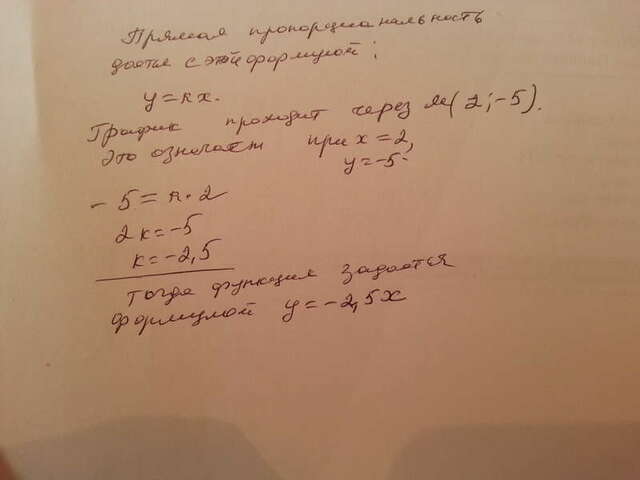 Прямая пропорциональность
дается с этой формулой:
y=kx.
График проходит через М(2;-5).
Это означает при x=2,
y=-5.
-5=k·2
2k=-5
k=-2,5
Тогда функция задается
формулой y=-2,5x